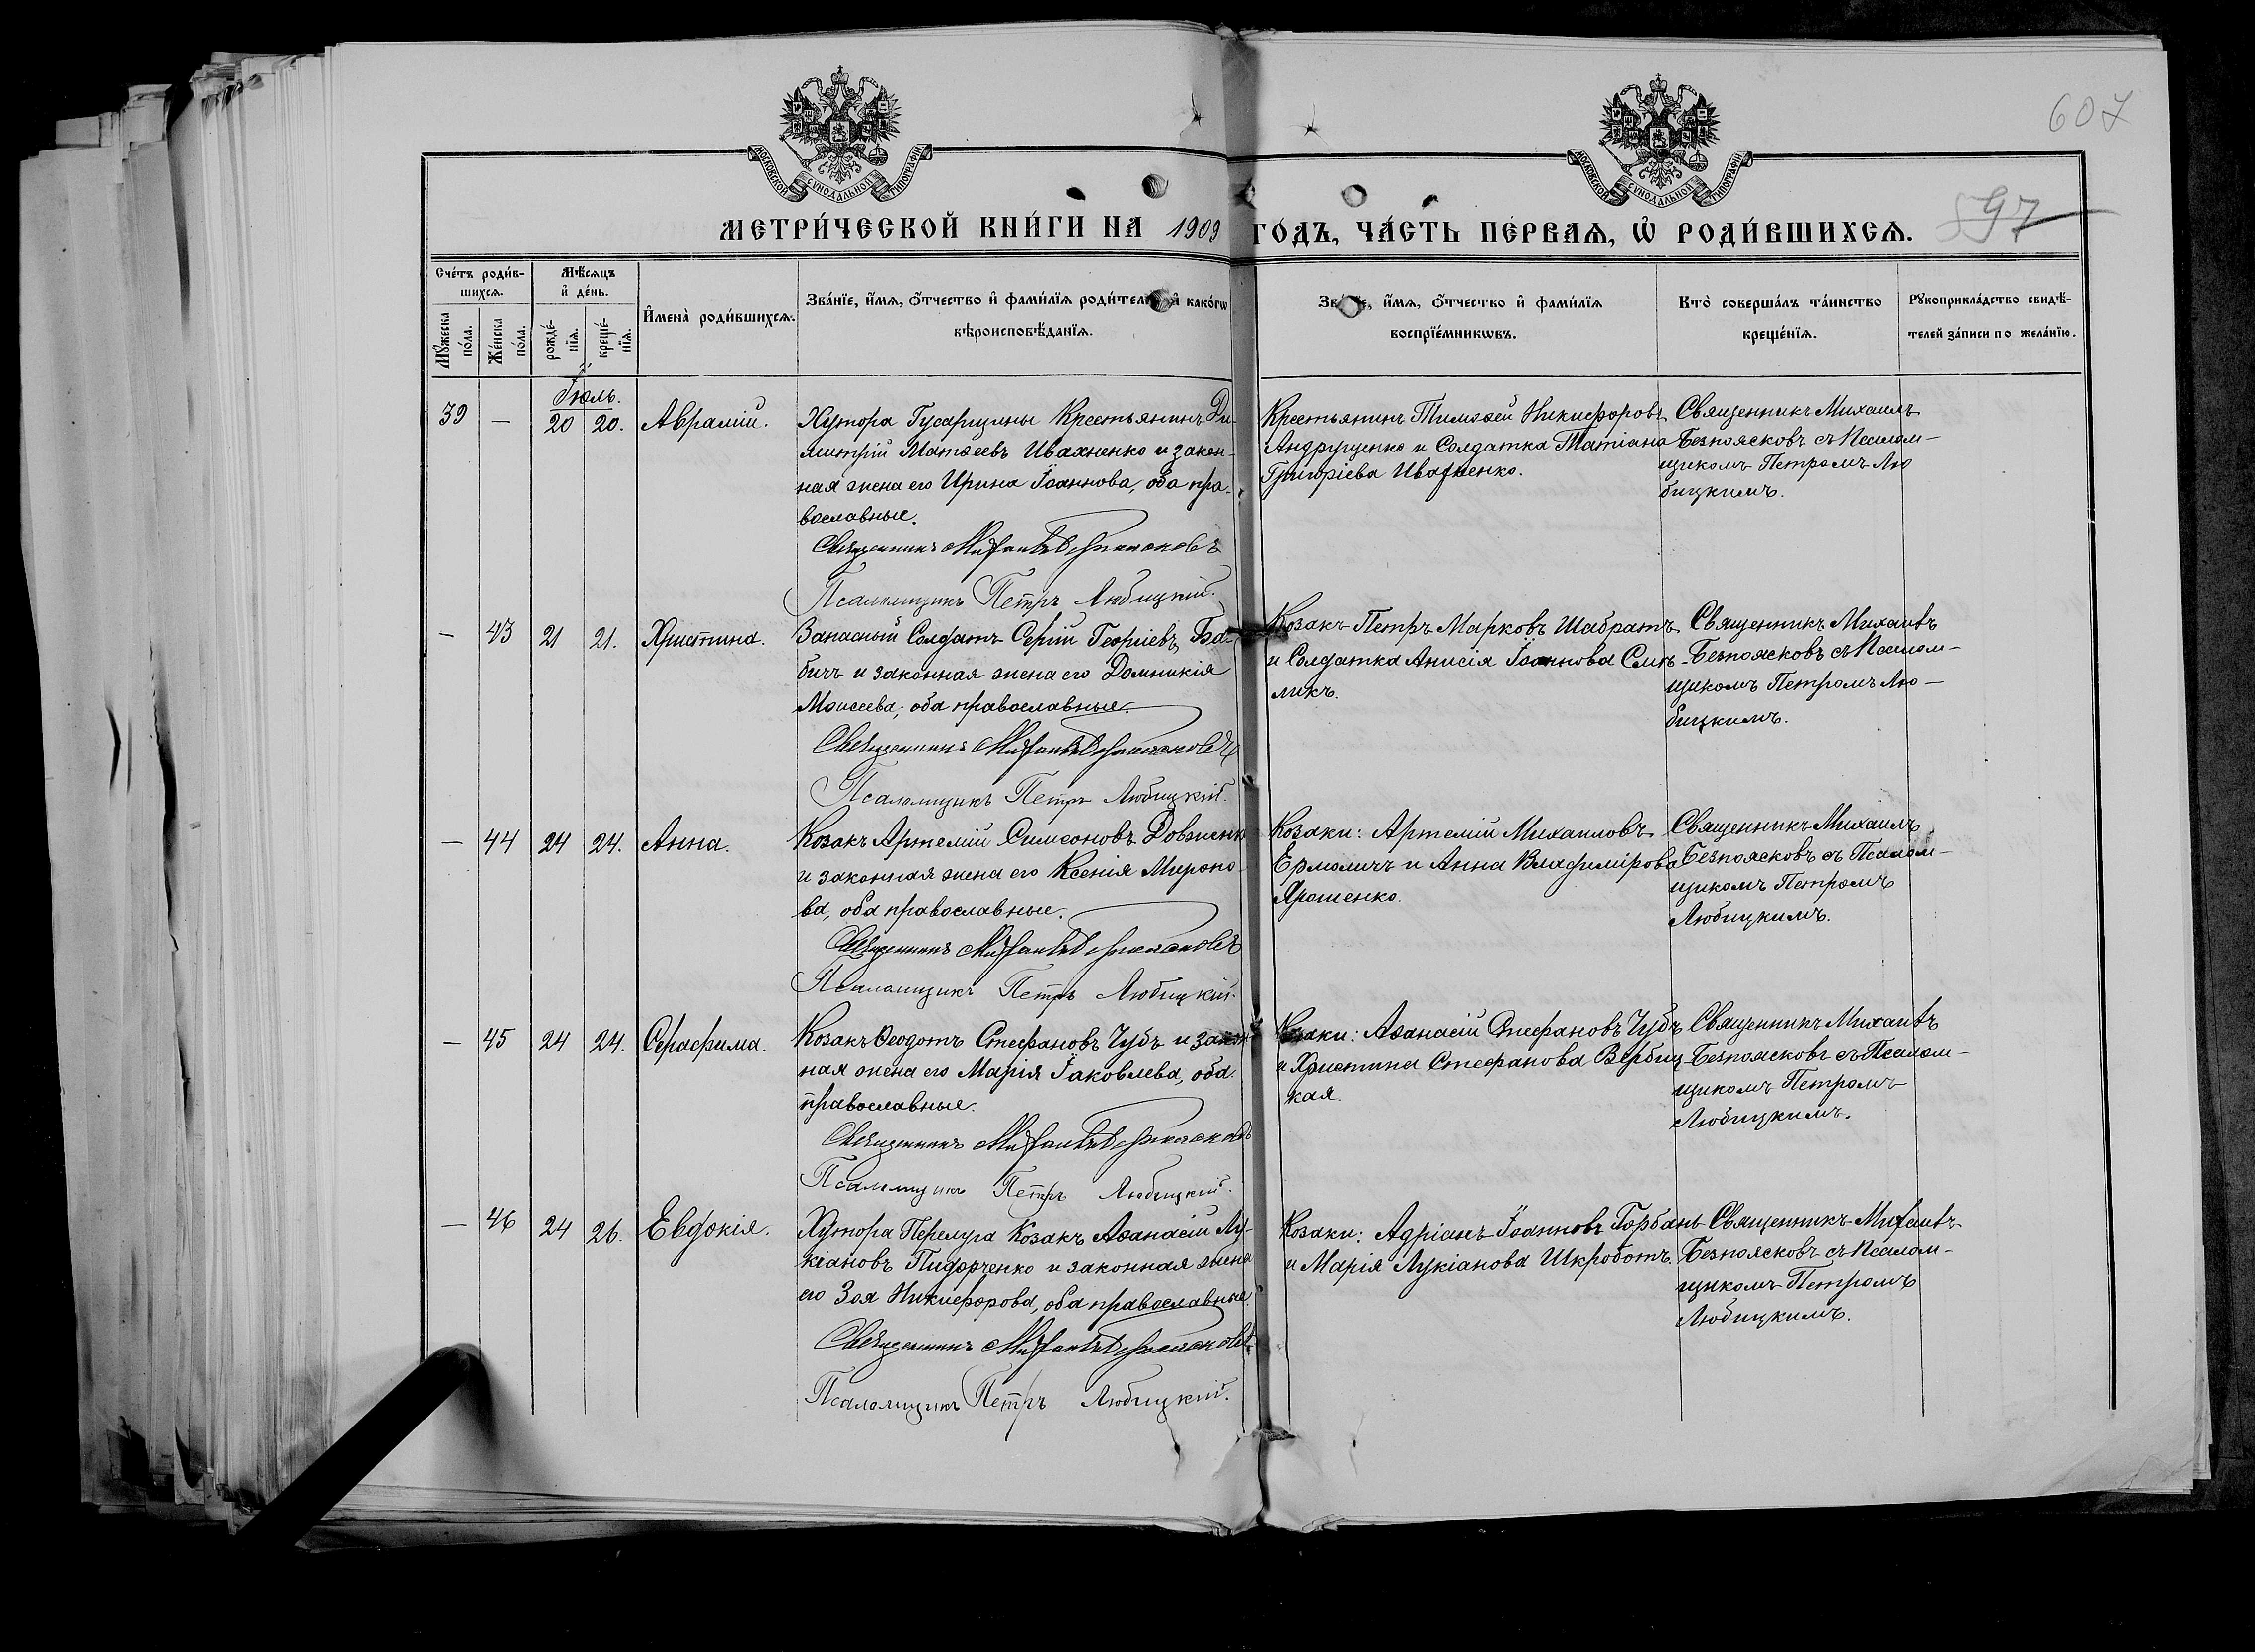 607
МОСКОВСКОЙ СУНОДАЛЬНОЙ ТИПОГРАФІИ
МОСКОВСКОЙ СУНОДАЛЬНОЙ ТИПОГРАФІИ
597
МЕТРИ́ЧЕСКОЙ КНИ́ГИ НА 1909 ГОДЪ, ЧА́СТЬ ПЕ́РВАѦ, Ѡ҆ РОДИ́ВШИХСѦ.
Сче́тъ роди́в-
шихсѧ.
Мꙋ́жеска по́ла.
Же́нска по́ла.
Мѣ́сѧцъ
и҆ де́нь.
рожде́-
нїѧ.
креще́-
нїѧ.
И҆мена̀ роди́вшихсѧ.
Зва́нїе, и҆́мѧ, ѻ҆́тчество и҆ фами́лїѧ роди́тел и҆ како́гѡ
вѣроисповѣ́данїѧ.
Зва́нїе, и҆́мѧ, ѻ҆́тчество и҆ фами́лїѧ
воспрїе́мникѡвъ.
Кто̀ соверша́лъ та́инство
креще́нїѧ.
Рꙋкоприкла́дство свидѣ́-
телей за́писи по жела́нїю.
Іюль.
39 — 20 20. Аврамій.
Хутора Гусарщины Крестьянинъ Ди-
митрій Матѳеевъ Ивахненко и закон-
ная жена его Ирина Іоаннова, оба пра-
вославные.
Священникъ Михаилъ Безпоясковъ
Псаломщикъ Петръ Любицкій.
Крестьянинъ Тимоѳей Никифоровъ
Андрущенко и Солдатка Татіана
Григоріева Ивахненко.
Священникъ Михаилъ
Безпоясковъ съ Псалом-
щикомъ Петромъ Лю
бицкимъ.
— 43 21 21. Христина.
Запасный Солдатъ Сергій Георгіевъ Ба-
бичъ и законная жена его Домникія
Моисеева; оба православные.
Священникъ Михаилъ Безпоясковъ
Псаломщикъ Петръ Любицкій.
Козакъ Петръ Марковъ Шабратъ
и Солдатка Анисія Іоаннова Смо-
ликъ.
Священникъ Михаилъ
Безпоясковъ съ Псалом-
щикомъ Петромъ Лю-
бицкимъ.
— 44 24 24. Анна.
Козакъ Артемій Симеоновъ Довженк
и законная жена его Ксенія Мироно-
ва, оба православные.
Священникъ Михаилъ Безпоясковъ
Псаломщикъ Петръ Любицкій.
Козаки: Артемій Михаиловъ
Ермоличъ и Анна Владимірова
Ярошенко.
Священникъ Михаилъ
Безпоясковъ съ Псалом-
щикомъ Петромъ
Любицкимъ.
— 45 24 24. Серафима.
Козакъ Ѳеодотъ Стефановъ Чубъ и закон-
ная жена его Марія Іаковлева, оба
православные.
Священникъ Михаилъ Безпоясковъ
Псаломщикъ Петръ Любицкій.
Козаки: Аѳанасій Стефановъ Чубъ
и Христина Стефанова Вербиц-
кая.
Священникъ Михаилъ
Безпоясковъ съ Псалом-
щикомъ Петромъ
Любицкимъ.
— 46 24 26. Евдокія.
Хутора Перелуга Козакъ Аѳанасій Лу-
кіановъ Пидорченко и законная жена
его Зоя Никифорова, оба православные.
Священникъ Михаилъ Безпоясковъ
Псаломщикъ Петръ Любицкій.
Козаки: Адріанъ Іоанновъ Горбань
и Марія Лукіанова Шкроботъ.
Священникъ Михаилъ
Безпоясковъ съ Псалом-
щикомъ Петромъ
Любицкимъ.